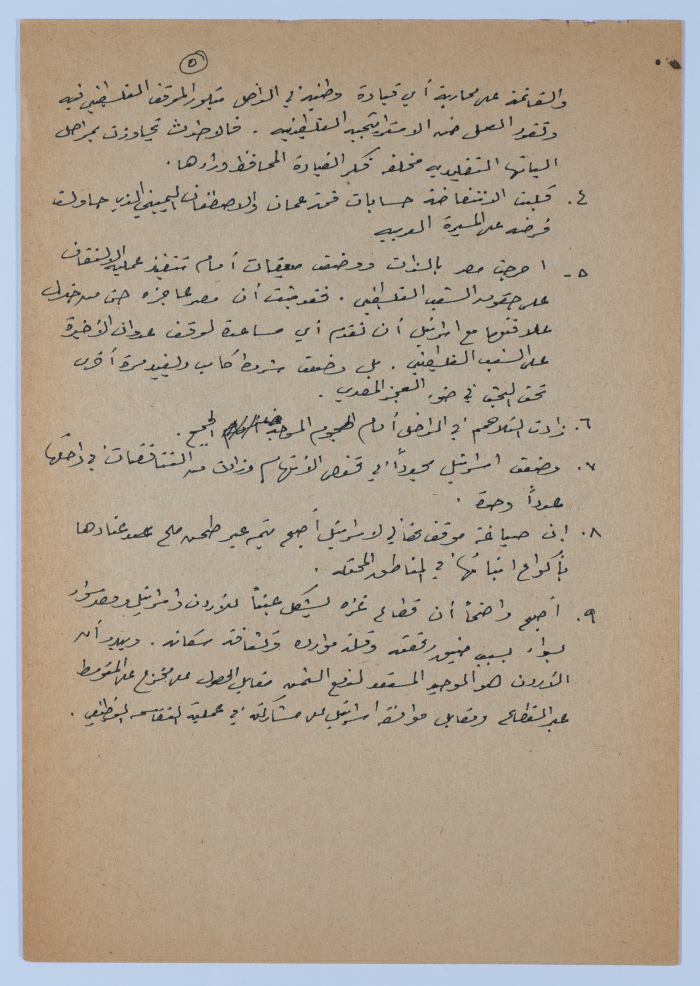 ٥
والقائمة على محاربة أي قيادة وطنية في الداخل تبلور الموقف الفلسطيني فيه
وتقود العمل ضمن الاستراتيجية الفلسطينية . فالاحداث تجاوزت بمراحل
البيانات التقليدية مخلفة فكر القيادة المحافظ وراءها .
٤. قلبت الانتفاضة حسابات قمة عمان والاصطفاف اليميني الذي حاولت
فرضه على المسيرة العربية
٥- احرجت مصر بالذات ووضعت معيقات أمام تنفيذ عملية الالتفاف
على حقوق الشعب الفلسطيني . فقد ثبت أن مصر عاجزة حتى من خلال
علاقتها مع اسرائيل أن تقدم أي مساعدة لوقف عدوان الأخيرة
على الشعب الفلسطيني . بل وضعت شروط كامب ديفيد مرة أخرى
تحت البحث في ضوء العجز المصري .
٦. زادت التلاحم في الداخل أمام الهجوم الموحد الجميع .
٧. وضعت اسرائيل مجدداً في قفص الاتهام وزادت من التناقضات في داخلها
حدة .
٨. إن صياغة موقف لاسرائيل أصبح يتم عبر
في المناطق المحتلة .
٩. أصبح واضحاً أن قطاع غزة يشكل عبئاً للأردن واسرائيل ومصر سواء
بسواء بسبب ضيق رقعته وقلة موارده وكثافة سكانه . ويبدو أن
الأردن هو الوحيد المستعد لدفع الثمن مقابل الحصول على مخرج على المتوسط
عبر القطاع ومقابل موافقة اسرائيل على مشاركته في عملية التقاسم الوظيفي .